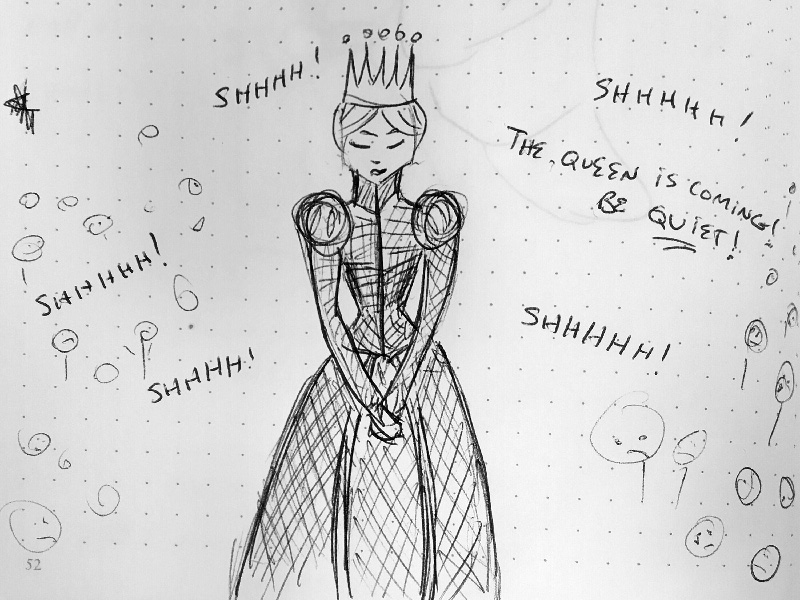 SHHHH!
SHHHHH!
THE QUEEN IS COMING!
BE QUIET!
SHHHHH!
SHHHHH!
SHHHH!
52